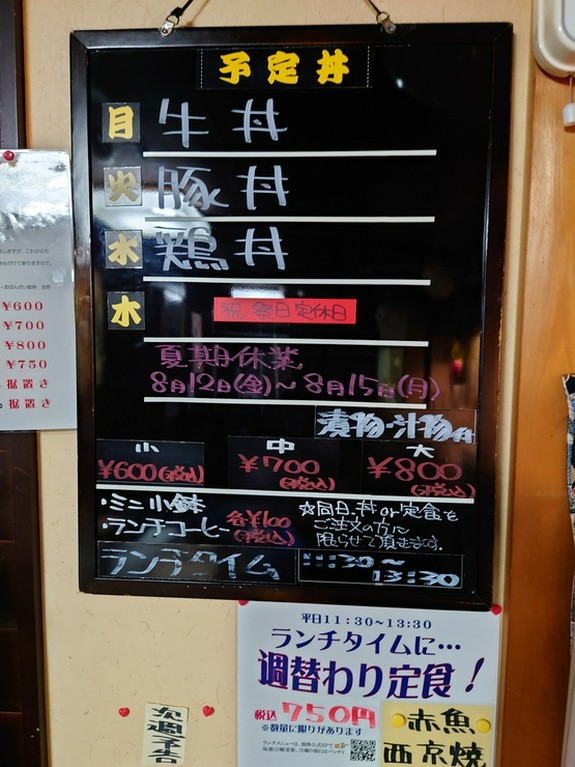 予定丼
月 牛丼
火 豚丼
水 鶏丼
木 祝 祭日定休日
夏期休業
8月12日(金)〜8月15日(月)
漬物・汁物付
小 中 大
¥600(税込) ¥700(税込) ¥800(税込)
・ミニ小鉢
・ランチコーヒー 各¥100(税込)
☆同日、丼or定食を
ご注文の方に
限らせて頂きます。
ランチタイム 11:30〜13:30
¥600
¥700
¥800
¥750
据置き
据置き
平日11:30~13:30
ランチタイムに…
週替わり定食!
税込750円
※数量に限りがあります
赤魚
西京焼
次週予告